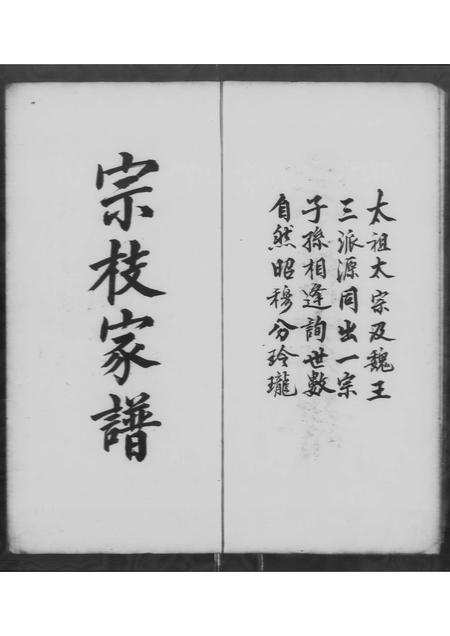 太祖太宗及魏王
三派源同出一宗
子孫相逢詢世數
自然昭穆分玲瓏
宗枝家譜